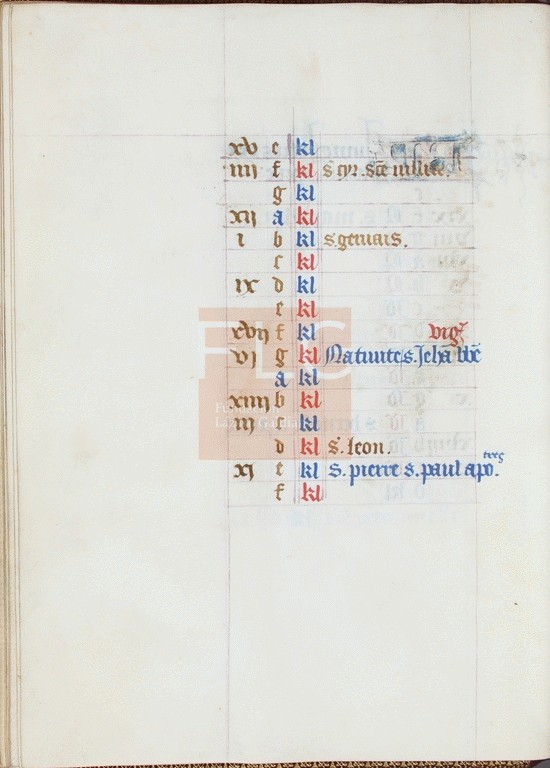 xv e kl
iiij f kl s cyr. sce iulite.
g kl
xij a kl
i b kl s geruais.
c kl
ix d kl
e kl
xvij f kl vigᵉ
vj g kl Natiuite s. Jehā bb̄e
a kl
xiiij b kl
iij c kl
d kl s. leon.
xj e kl s. pierre s. paul apo.tres
f kl
FLG
Fundación
Lázaro Galdiano